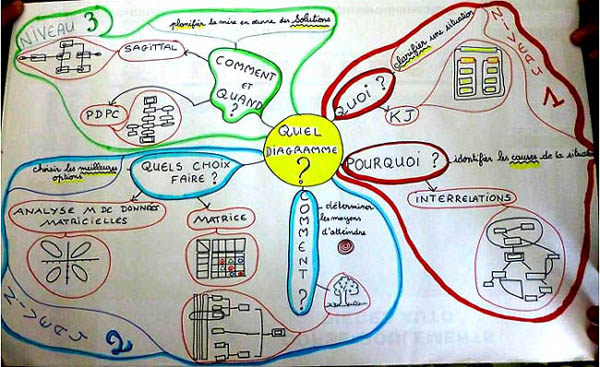 QUEL
DIAGRAMME
?
NIVEAU 1
QUOI ?
clarifier une situation
KJ
POURQUOI ?
identifier les causes de la situation
INTERRELATIONS
NIVEAU 2
COMMENT ?
déterminer
les moyens
d'atteindre
QUELS CHOIX
FAIRE ?
choisir les meilleures
options
MATRICE
ANALYSE M DE DONNÉES
MATRICIELLES
NIVEAU 3
COMMENT
ET
QUAND
?
planifier la mise en œuvre des Solutions
SAGITTAL
PDPC